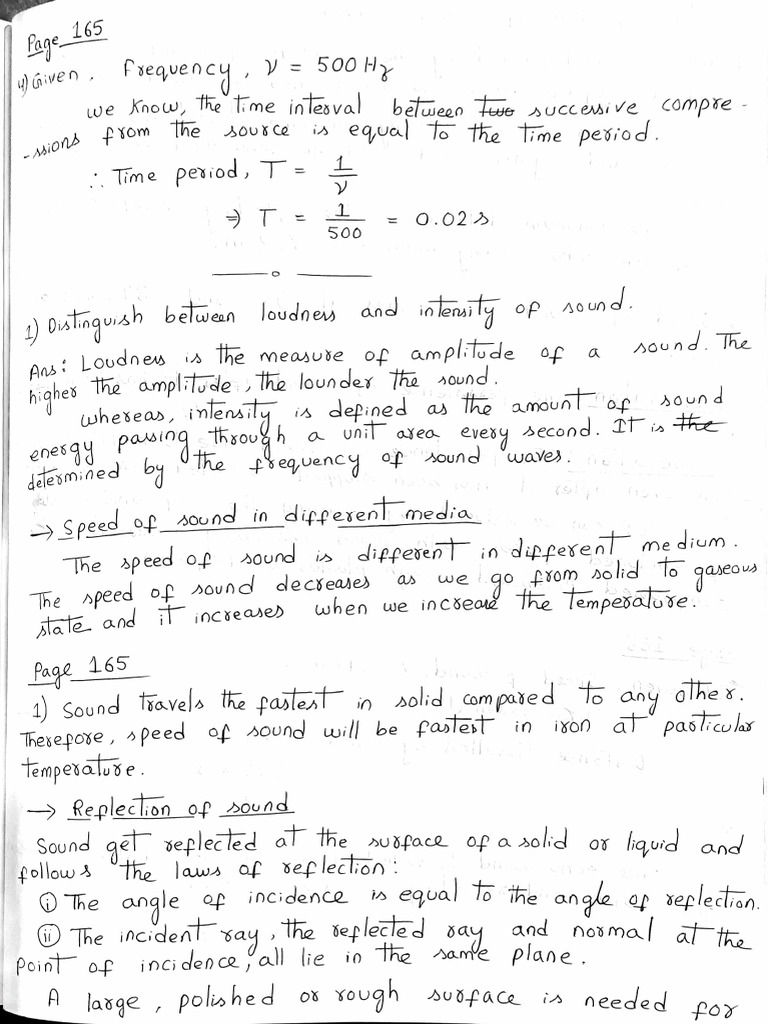 Page 165
4) Given, Frequency, ν = 500 Hz
we know, the time interval between two successive compre-
-ssions from the source is equal to the time period.
∴ Time period, T = 1/ν
⇒ T = 1/500 = 0.02 s
1) Distinguish between loudness and intensity of sound.
Ans: Loudness is the measure of amplitude of a sound. The
higher the amplitude, the lounder the sound.
whereas, intensity is defined as the amount of sound
energy passing through a unit area every second. It is the
determined by the frequency of sound waves.
→ Speed of sound in different media
The speed of sound is different in different medium.
The speed of sound decreases as we go from solid to gaseous
state and it increases when we increase the temperature.
Page 165
1) Sound travels the fastest in solid compared to any other.
Therefore, speed of sound will be fastest in iron at particular
temperature.
→ Reflection of sound
Sound get reflected at the surface of a solid or liquid and
follows the laws of reflection:
(i) The angle of incidence is equal to the angle of reflection.
(ii) The incident ray, the reflected ray and normal at the
point of incidence, all lie in the same plane.
A large, polished or rough surface is needed for